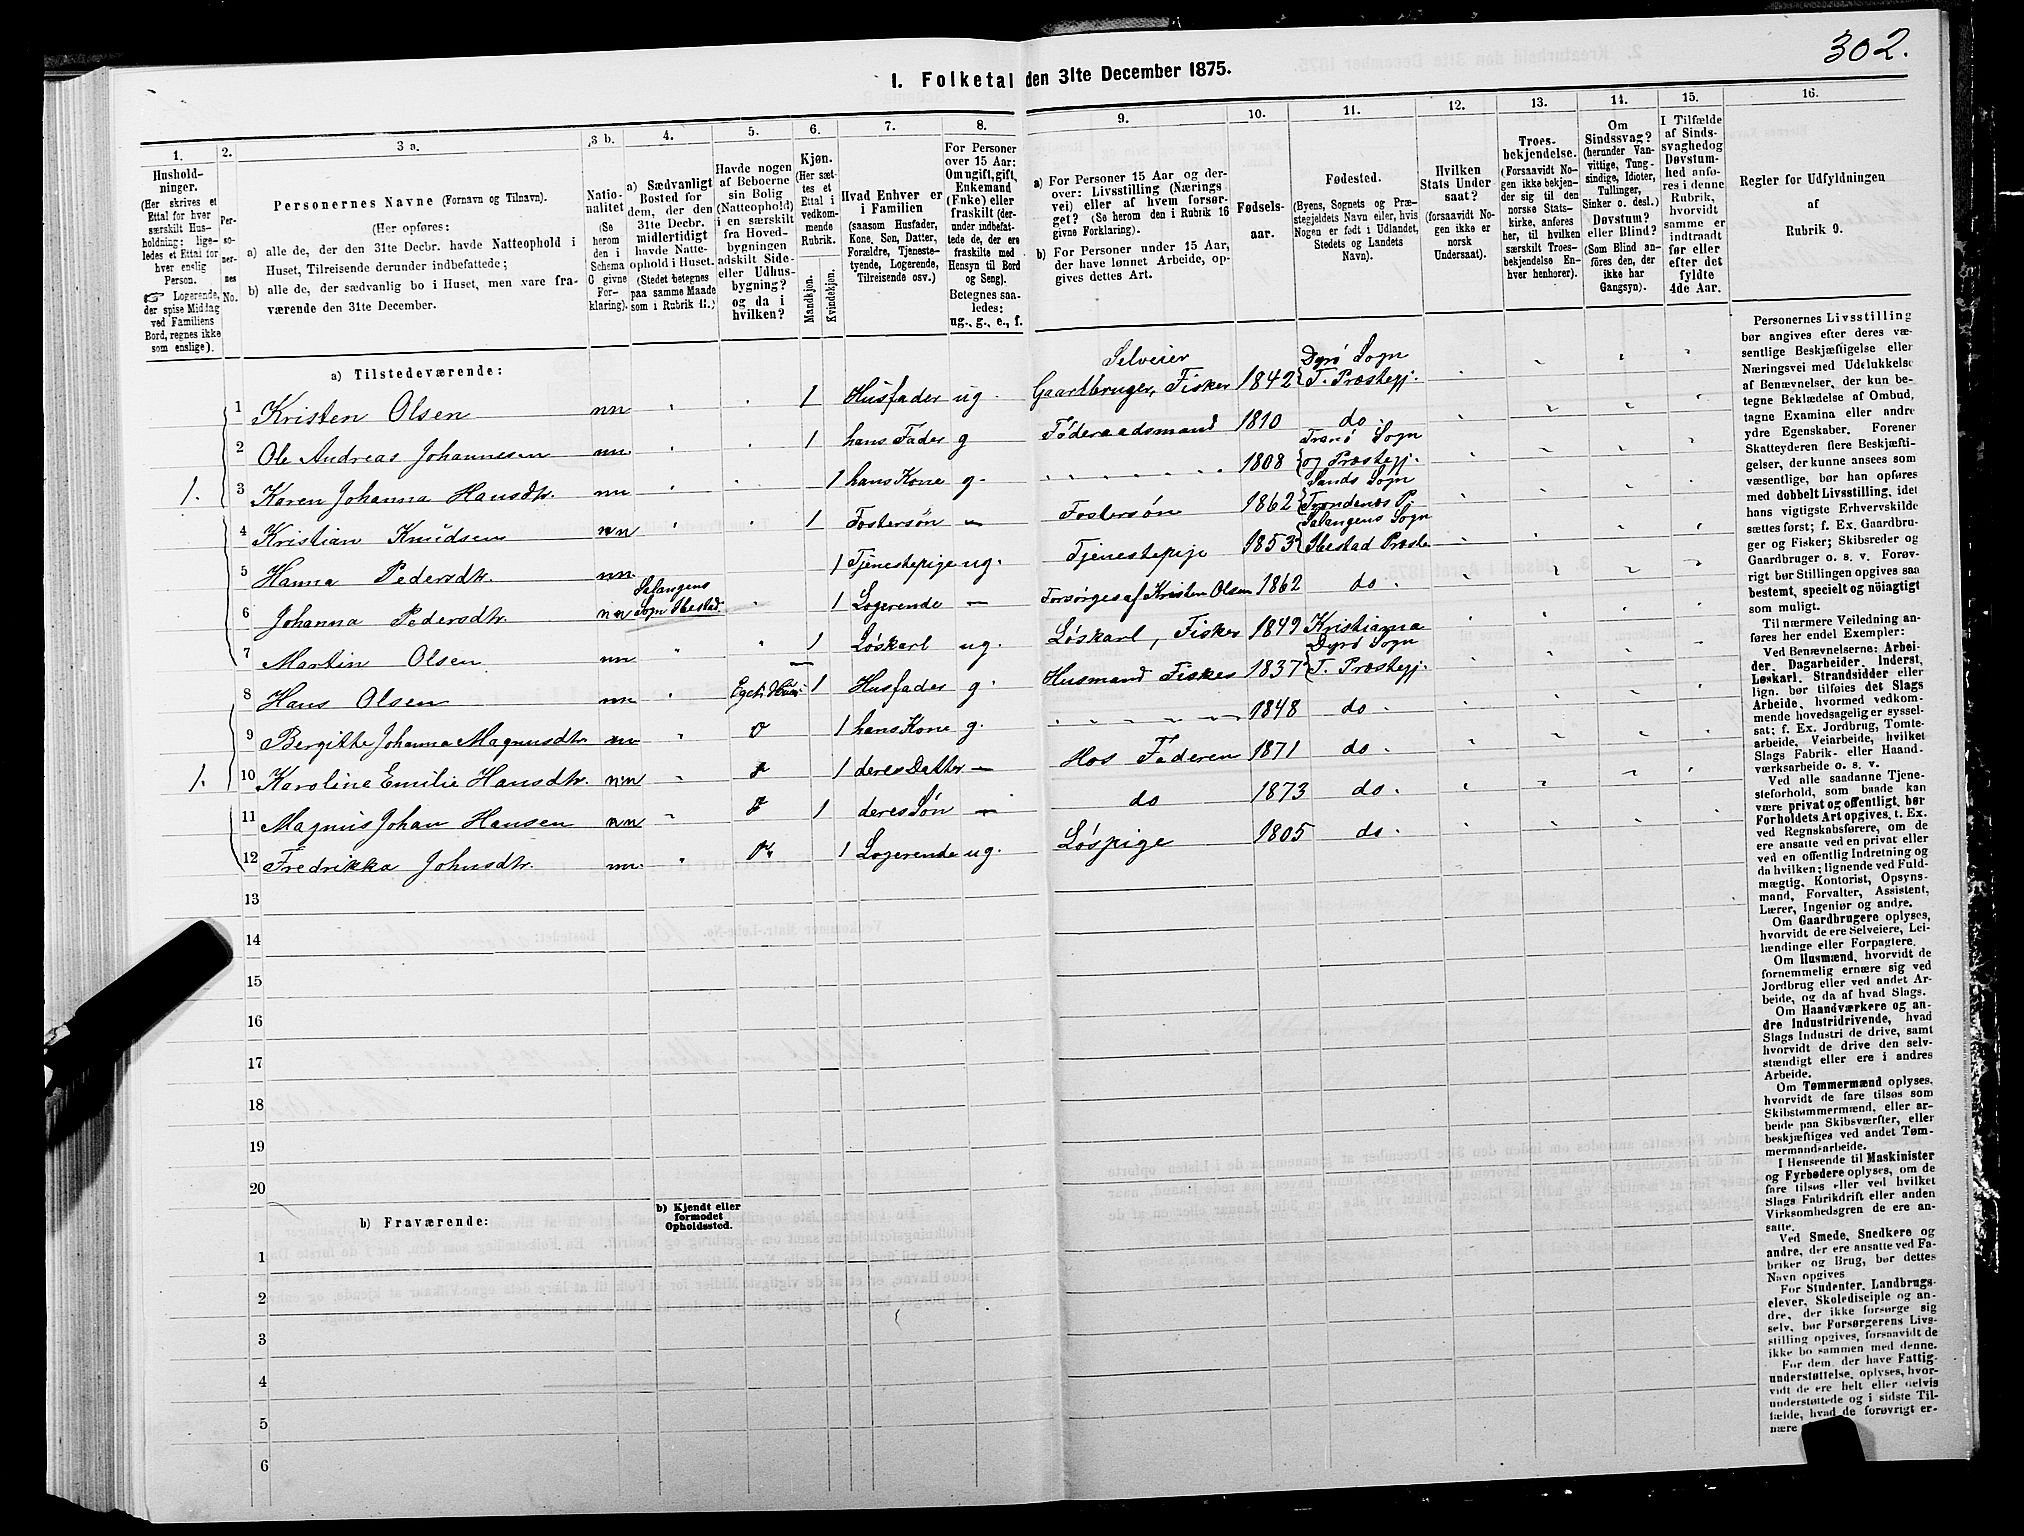 302.
I. Folketal den 31te December 1875.
1. 2. 3 a. 3 b. 4. 5. 6. 7. 8. 9. 10. 11. 12. 13. 14. 15. 16.
Hushold-
ninger.
(Her skrives et
Ettal for hver
særskilt Hus-
holdning; lige-
ledes et Ettal for
hver enslig
Person.
☞ Logerende,
der spise Middag
ved Familiens
Bord, regnes ikke
som enslige).
Per-
so-
ner-
nes
No.
Personernes Navne (Fornavn og Tilnavn).
(Her opføres:
a) alle de, der den 31te Decbr. havde Natteophold i
Huset, Tilreisende derunder indbefattede;
b) alle de, der sædvanlig bo i Huset, men vare fra-
værende den 31te December.
Natio-
nalitet
(Se
herom
den i
Schema
6 givne
For-
klaring).
a) Sædvanligt
Bosted for
dem, der den
31te Decbr.
midlertidigt
havde Natte-
ophold i Huset.
(Stedet betegnes
paa samme Maade
som i Rubrik 11.)
Havde nogen
af Beboerne
sin Bolig
(Natteophold)
i en særskilt
fra Hoved-
bygningen
adskilt Side-
eller Udhus-
bygning?
og da i
hvilken?
Kjøn.
(Her sæt-
tes et
Ettal i
vedkom-
mende
Rubrik.
Mandkjøn.
Kvindekjøn.
Hvad Enhver er
i Familien
(saasom Husfader,
Kone, Søn, Datter,
Forældre, Tjeneste-
tyende, Logerende,
Tilreisende osv.)
For Personer
over 15 Aar:
Om ugift, gift,
Enkemand
(Enke) eller
fraskilt (der-
under indbefat-
tede de, der ere
fraskilte med
Hensyn til Bord
og Seng).
Betegnes saa-
ledes:
ug., g., e., f.
a) For Personer 15 Aar og der-
over: Livsstilling (Nærings-
vei) eller af hvem forsør-
get? (Se herom den i Rubrik 16
givne Forklaring).
b) For Personer under 15 Aar,
der have lønnet Arbeide, op-
gives dettes Art.
Fødsels-
aar.
Fødested.
(Byens, Sognets og Præ-
stegjeldets Navn eller, hvis
Nogen er født i Udlandet,
Stedets og Landets
Navn).
Hvilken
Stats Under-
saat?
(forsaavidt No-
gen ikke er
norsk
Undersaat).
Troes-
bekjendelse.
(Forsaavidt No-
gen ikke bekjen-
der sig til den
norske Stats-
kirke, anføres
her, til hvilken
særskilt Troes-
bekjendelse En-
hver henhører).
Om
Sindssvag?
(herunder Van-
vittige, Tung-
sindige, Idioter,
Tullinger,
Sinker o. desl.)
Døvstum?
eller Blind?
(Som Blind an-
føres den, der
ikke har
Gangsyn).
I Tilfælde
af Sinds-
svaghed og
Døvstum-
hed anfø-
res i denne
Rubrik,
hvorvidt
samme er
indtraadt
før eller
efter det
fyldte
4de Aar.
Regler for Udfyldningen
af
Rubrik 9.
a) Tilstedeværende:
Selveier Dyrø Sogn
1 Kristen Olsen nn 1 Husfader ug. Gaardbruger, Fisker 1842 T. Præstegj.
2 Ole Andreas Johannesen nn 1 hans Fader g Føderaadsmand 1810 do.
Tranø Sogn
1. 3 Karen Johanna Hansdtr. nn 1 hans Kone g. 1808 og Præstegj.
Sands Sogn
4 Kristian Knudsen nn 1 Fostersøn — Fostersøn 1862 Trondenæs P.
Salangens Sogn
5 Hanna Pedersdtr. nn 1 Tjenestepige ug. Tjenestepige 1853 Ibestad Præste
Salangens
6 Johanna Pedersdtr. nn Sogn Ibestad. 1 Logerende — Forsørges af Kristen Olsen 1862 do.
7 Martin Olsen nn 1 Løskarl ug. Løskarl, Fisker 1849 Kristiania
Dyrø Sogn
8 Hans Olsen nn Eget Huus 1 Husfader g. Husmand Fisker 1837 T. Præstegj.
9 Bergitte Johanna Magnusdtr. nn 1 hans Kone g. 1848 do.
1. 10 Karoline Emilie Hansdtr. nn 1 deres Datter — Hos Faderen 1871 do.
11 Magnus Johan Hansen nn 1 deres Søn — do 1873 do.
12 Fredrikka Johnsdtr. nn. 1 Logerende ug. Løspige 1805 do.
13
14
15
16
17
18
19
20
b) Fraværende:
b) Kjendt eller
formodet
Opholdssted.
1
2
3
4
5
6
Personernes Livsstilling
bør angives efter deres væ-
sentlige Beskjæftigelse eller
Næringsvei med Udelukkelse
af Benævnelser, der kun be-
tegne Beklædelse af Ombud,
tagne Examina eller andre
ydre Egenskaber. Forener
Skatteyderen flere Beskjæfti-
gelser, der kunne ansees som
væsentlige, bør han opføres
med dobbelt Livsstilling, idet
hans vigtigste Erhvervskilde
sættes først; f. Ex. Gaardbru-
ger og Fisker; Skibsreder og
Gaardbruger o. s. v. Forøv-
rigt bør Stillingen opgives saa
bestemt, specielt og nöiagtigt
som muligt.
Til nærmere Veiledning an-
føres her endel Exempler:
Ved Benævnelserne: Arbei-
der, Dagarbeider, Inderst,
Løskarl, Strandsidder eller
lign. bør tilføies det Slags
Arbeide, hvormed vedkom-
mende hovedsagelig er syssel-
sat; f. Ex. Jordbrug, Tomte-
arbeide, Veiarbeide, hvilket
Slags Fabrik- eller Haand-
værksarbeide o. s. v.
Ved alle saadanne Tjene-
steforhold, som baade kan
være privat og offentligt, bør
Forholdets Art opgives. t. Ex.
ved Regnskabsførere, om de
ere ansatte ved en privat eller
ved en offentlig Indretning og
da hvilken; lignende ved Fuld-
mægtig, Kontorist, Opsyns-
mand, Forvalter, Assistent,
Lærer, Ingeniør og andre.
Om Gaardbrugere oplyses,
hvorvidt de ere Selveiere, Lei-
lændinge eller Forpagtere.
Om Husmænd, hvorvidt de
fornemmelig ernære sig ved
Jordbrug eller ved andet Ar-
beide, og da af hvad Slags.
Om Haandværkere og an-
dre Industridrivende, hvad
Slags Industri de drive, samt
hvorvidt de drive den selv-
stændigt eller ere i andres
Arbeide.
Om Tømmermænd oplyses,
hvorvidt de fare tilsøs som
Skibstømmermænd, eller ar-
beide paa Skibsværfter, eller
beskjæftiges ved andet Tøm-
mermandsarbeide.
I Henseende til Maskinister
og Fyrbødere oplyses, om de
fare tilsøs eller ved hvilket
Slags Fabrikdrift eller anden
Virksomhedsgren de ere an-
satte.
Ved Smede, Snedkere og
andre, der ere ansatte ved Fa-
briker og Brug, bør dettes
Navn opgives
For Studenter, Landbrugs-
elever, Skoledisciple og an-
dre, der ikke forsørge sig
selv, bør Forsørgerens Livs-
stilling opgives, forsaavidt de
ikke bo sammen med denne.
For dem, der have Fattig-
understøttelse, oplyses, hvor-
vidt de ere helt eller delvis
understøttede og i sidste Til-
fælde, hvad de forøvrigt er-
nære